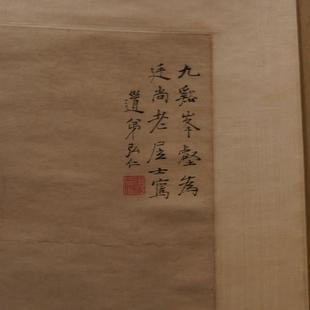 九谿峯壑為
延尚老居士寫
道弟弘仁